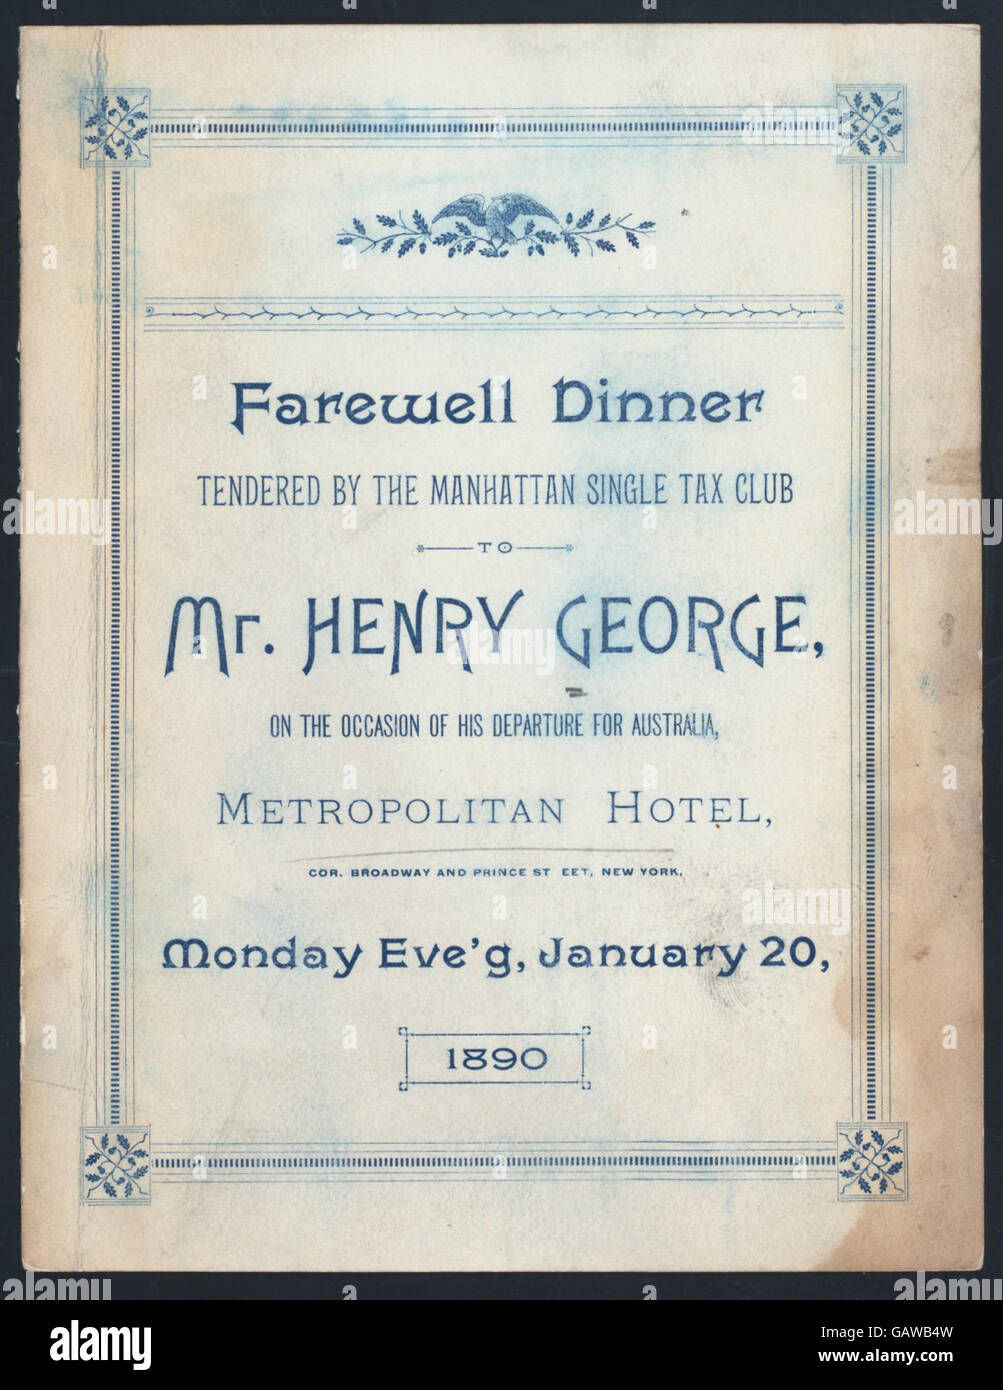 Farewell Dinner
TENDERED BY THE MANHATTAN SINGLE TAX CLUB
TO
Mr. HENRY GEORGE,
ON THE OCCASION OF HIS DEPARTURE FOR AUSTRALIA,
METROPOLITAN HOTEL,
COR. BROADWAY AND PRINCE ST EET, NEW YORK,
Monday Eve'g, January 20,
1890
alamy
Image ID: GAWB4W
www.alamy.com